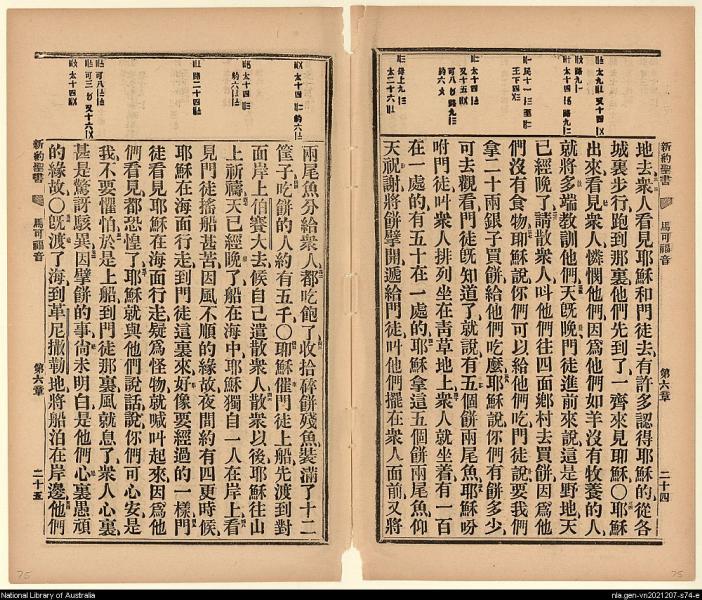 新約聖書
馬可福音
第六章
二十四
地去衆人看見耶穌和門徒去有許多認得耶穌的從各
城裏步行跑到那裏他們先到了一齊來見耶穌〇耶穌
出來看見衆人憐憫他們因爲他們如羊沒有牧養的人
就將多端教訓他們天旣晚門徒進前來說這是野地天
已經晚了請散衆人呌他們往四面鄉村去買餅因爲他
們沒有食物耶穌說你們可以給他們吃門徒說要我們
拿二十兩銀子買餅給他們吃麼耶穌說你們有餅多少
可去觀看門徒旣知道了就說有五個餅兩尾魚耶穌吩
咐門徒呌衆人排列坐在靑草地上衆人就坐着有一百
在一處的有五十在一處的耶穌拿這五個餅兩尾魚仰
天祝謝將餅擘開遞給門徒呌他們擺在衆人面前又將
兩尾魚分給衆人都吃飽了收拾碎餅殘魚裝滿了十二
筐子吃餅的人約有五千〇耶穌催門徒上船先渡到對
面岸上伯賽大去候自己遣散衆人散衆以後耶穌往山
上祈禱天已經晚了船在海中耶穌獨自一人在岸上看
見門徒搖船甚苦因風不順的緣故夜間約有四更時候
耶穌在海面行走到門徒這裏來好像要經過的一樣門
徒看見耶穌在海面行走疑爲怪物就喊呌起來因爲他
們看見都恐惶了耶穌就與他們說話說你們可心安是
我不要懼怕於是上船到門徒那裏風就息了衆人心裏
甚是驚訝駭異因擘餅的事尙未明白是他們心裏愚頑
的緣故〇旣渡了海到革尼撒勒地將船泊在岸邊他們
新約聖書
馬可福音
第六章
二十五
75
75
National Library of Australia
nla.gen-vn2021207-s74-e